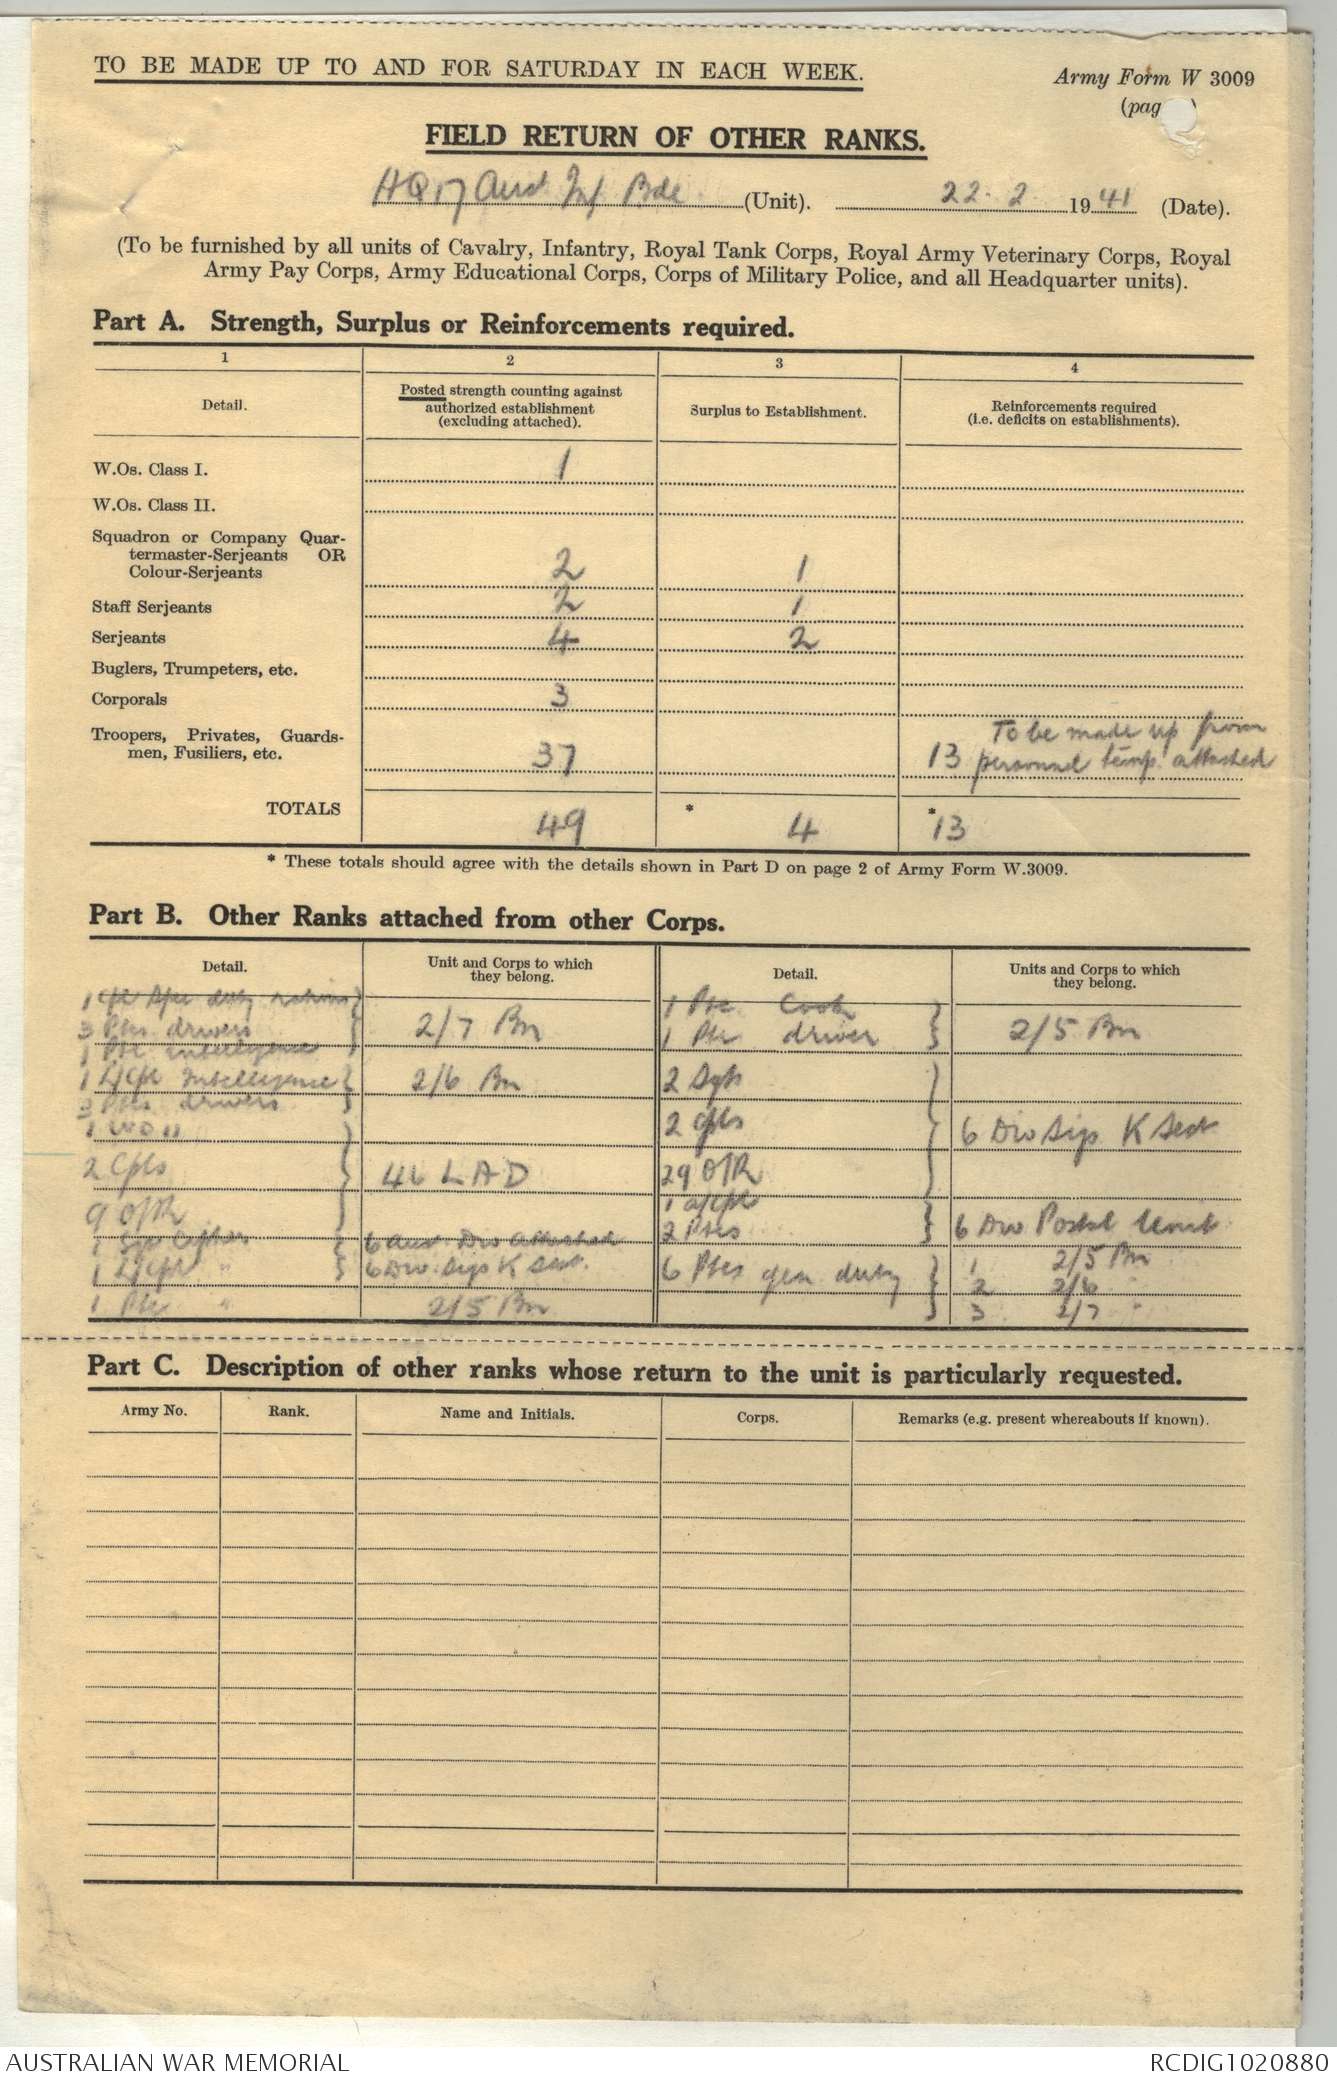 TO BE MADE UP TO AND FOR SATURDAY IN EACH WEEK.
Army Form W 3009
(pag
FIELD RETURN OF OTHER RANKS.
HQ 17 Aust Inf Bde (Unit). 22.2 1941 (Date).
(To be furnished by all units of Cavalry, Infantry, Royal Tank Corps, Royal Army Veterinary Corps, Royal
Army Pay Corps, Army Educational Corps, Corps of Military Police, and all Headquarter units).
Part A. Strength, Surplus or Reinforcements required.
1 2 3 4
Detail.
Posted strength counting against
authorized establishment
(excluding attached).
Surplus to Establishment.
Reinforcements required
(i.e. deficits on establishments).
W.Os. Class I. 1
W.Os. Class II.
Squadron or Company Quar-
termaster-Serjeants OR
Colour-Serjeants 2 1
Staff Serjeants 2 1
Serjeants 4 2
Buglers, Trumpeters, etc.
Corporals 3
Troopers, Privates, Guards-
men, Fusiliers, etc. 37 13 To be made up from
personnel temp. attached
TOTALS 49 * 4 * 13
* These totals should agree with the details shown in Part D on page 2 of Army Form W.3009.
Part B. Other Ranks attached from other Corps.
Detail.
Unit and Corps to which
they belong.
Detail.
Units and Corps to which
they belong.
1 Cpl duty
3 Ptes drivers 2/7 Bn
1 Pte Intelligence
1 L/Cpl Intelligence 2/6 Bn
3 Ptes drivers
1 WO II
2 Cpls 46 LAD
9 O/R
1 Sgt Cipher 6 Aust Div attached
1 L/Cpl " 6 Div. Sigs K Sect.
1 Pte " 2/5 Bn
1 Pte Cook
1 Pte driver 2/5 Bn
2 Sgts
2 Cpls 6 Div Sigs K Sect
29 O/R
1 a/Cpl
2 Ptes 6 Div Postal Unit
6 Ptes gen duty 1 2/5 Bn
2 2/6 "
3 2/7 "
Part C. Description of other ranks whose return to the unit is particularly requested.
Army No. Rank. Name and Initials. Corps. Remarks (e.g. present whereabouts if known).
AUSTRALIAN WAR MEMORIAL
RCDIG1020880